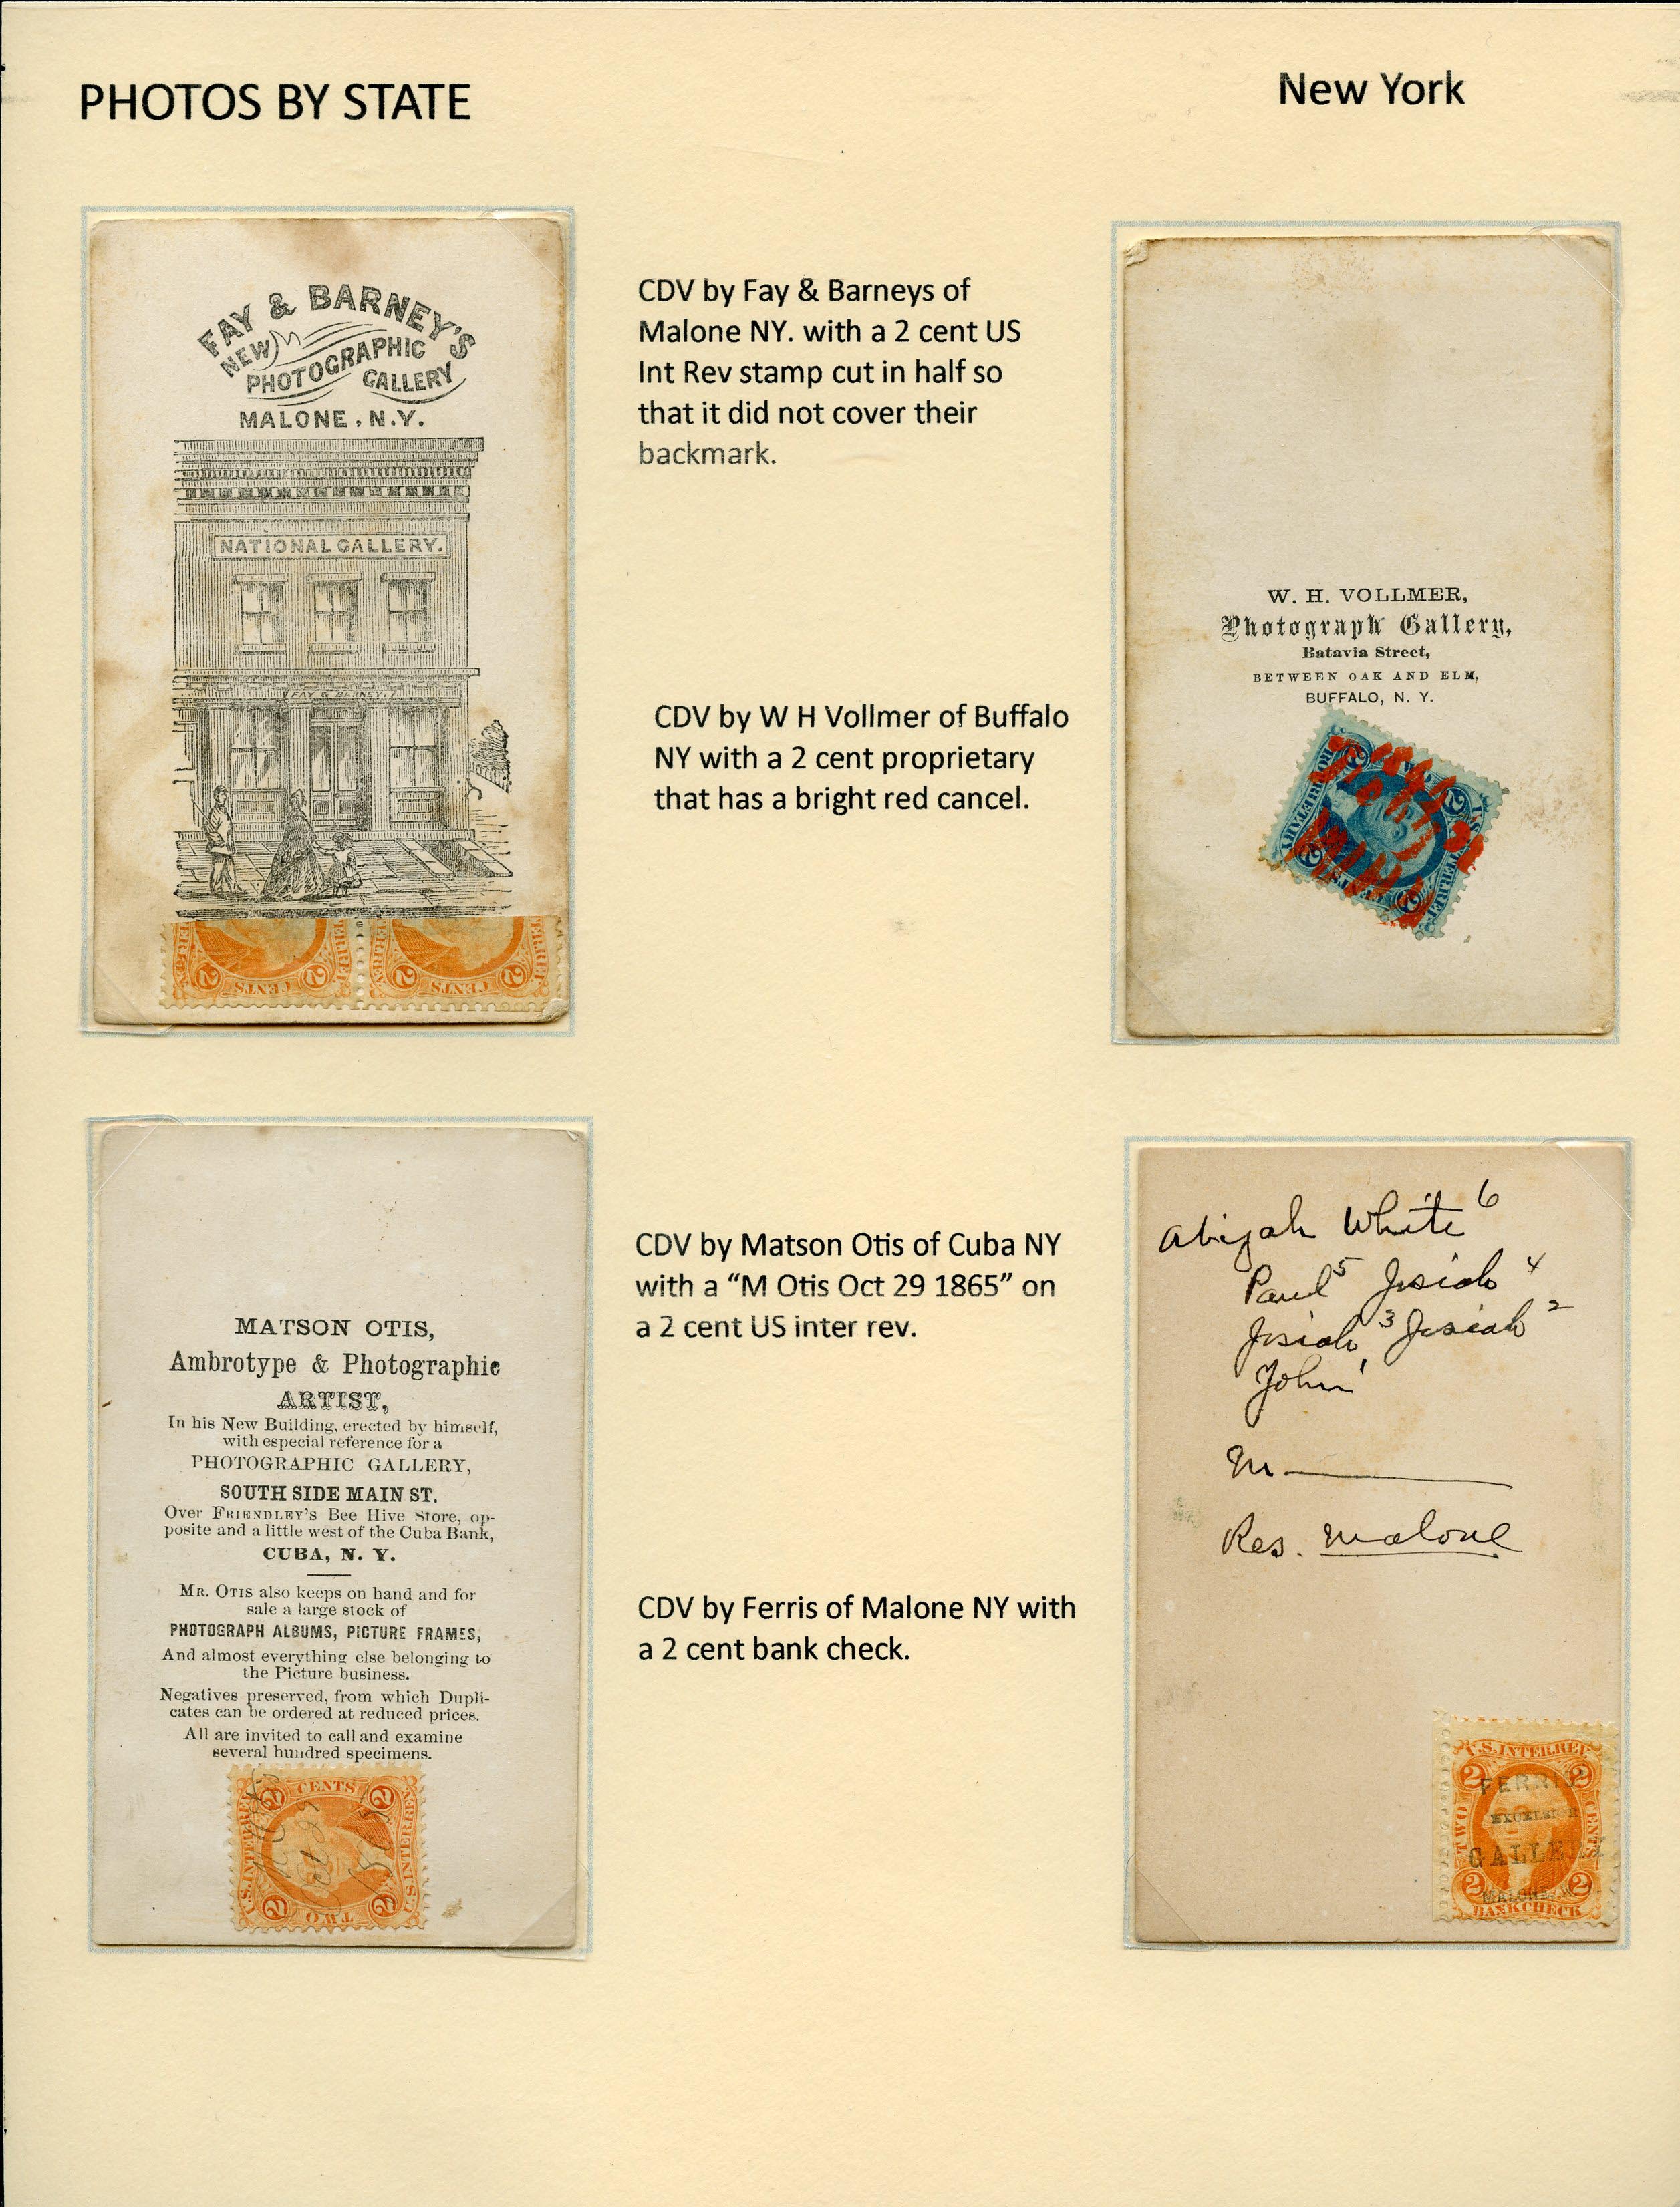 PHOTOS BY STATE
New York
FAY & BARNEY'S
NEW
PHOTOGRAPHIC
GALLERY
MALONE, N.Y.
NATIONAL GALLERY.
FAY & BARNEY.
CENTS
2
2
CENTS
2
2
CDV by Fay & Barneys of
Malone NY. with a 2 cent US
Int Rev stamp cut in half so
that it did not cover their
backmark.
W. H. VOLLMER,
Photograph Gallery,
Batavia Street,
BETWEEN OAK AND ELM,
BUFFALO, N. Y.
PROPRIETARY
2
2
2
2
CENTS
CDV by W H Vollmer of Buffalo
NY with a 2 cent proprietary
that has a bright red cancel.
MATSON OTIS,
Ambrotype & Photographic
ARTIST,
In his New Building, erected by himself,
with especial reference for a
PHOTOGRAPHIC GALLERY,
SOUTH SIDE MAIN ST.
Over FRIENDLEY'S Bee Hive Store, op-
posite and a little west of the Cuba Bank,
CUBA, N. Y.
MR. OTIS also keeps on hand and for
sale a large stock of
PHOTOGRAPH ALBUMS, PICTURE FRAMES,
And almost everything else belonging to
the Picture business.
Negatives preserved, from which Dupli-
cates can be ordered at reduced prices.
All are invited to call and examine
several hundred specimens.
2 CENTS 2
U.S. INTER. REV.
U.S. INTER. REV.
M Otis
Oct 29
1865
2 TWO 2
CDV by Matson Otis of Cuba NY
with a “M Otis Oct 29 1865” on
a 2 cent US inter rev.
CDV by Ferris of Malone NY with
a 2 cent bank check.
Abijah White 6
Paul 5 Josiah 4
Josiah 3 Josiah 2
John 1
M
Res. Malone
U.S. INTER. REV.
2 2
FERRIS'
EXCELSIOR
TWO CENTS
GALLERY
2 2
MALONE, N.Y.
BANK CHECK